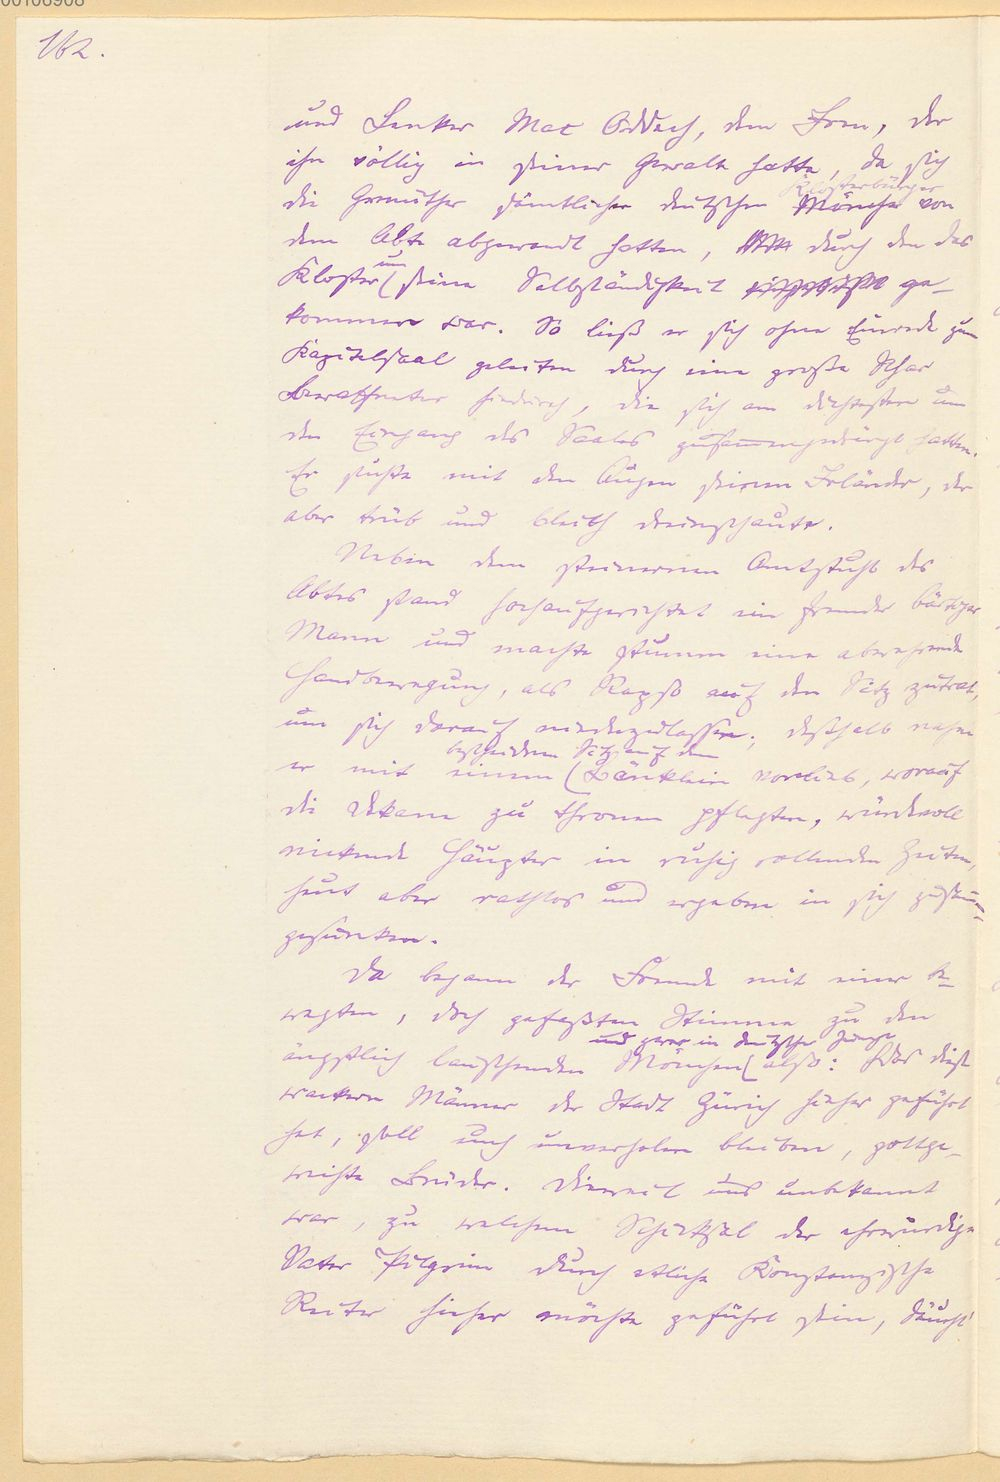 162.
und Lenker Mac Oddach, dem Iren, der
ihn völlig in seiner Gewalt hatte, da sich
die Gemüther sämtlicher deutschen Klosterbürger von
dem Abte abgewandt hatten, durch den das
Kloster um seine Selbständigkeit ge-
kommen war. So ließ er sich ohne Einrede zum
Kapitelsaal geleiten durch eine große Schar
Bewaffneter hindurch, die sich am dichtesten um
den Eingang des Saales zusammengedrängt hatten.
Er suchte mit den Augen seinen Irländer, der
aber trüb und bleich dreinschaute.
Neben dem steinernen Amtstuhl des
Abtes stand hochaufgerichtet ein fremder bärtiger
Mann und machte stumm eine abwehrende
Handbewegung, als Rapso auf den Sitz zutrat,
um sich darauf niederzulassen; deßhalb nahm
er mit einem bescheidenen Sitz auf dem Bänklein vorlieb, worauf
die Dekane zu thronen pflegten, würdevoll
nickende Häupter in ruhig rollenden Zeiten,
heut aber rathlos und ergeben in sich zusammen-
gesunken.
Da begann der Fremde mit einer be-
wegten, doch gefaßten Stimme zu den
ängstlich lauschenden Mönchen und zwar in deutscher Zunge also: Was diese
wackern Männer der Stadt Zürich hieher geführt
hat, soll euch unverholen bleiben, gottge-
weihte Brüder. Dieweil uns unbekannt
war, zu welchem Schicksal der ehrwürdige
Vater Pilgrim durch etliche Konstanzische
Reiter hieher möchte geführt sein, däucht'